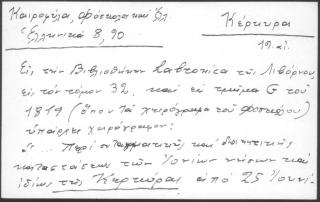 Καιροφύλα, Φόσκολος και Ἑλλ.
Ἑλληνικά 8, 90
Κέρκυρα
19 αἰ.
Εἰς τὴν Βιβλιοθήκην Labronica τῆς Λιβόρνου
εἰς τὸν τόμον 32, καὶ εἰς τμῆμα G τοῦ
1819 (ὅπου τὰ χειρόγραφα τοῦ Φοσκόλου)
ὑπάρχει χειρόγραφον:
"... Περὶ συνταγματικῆς καὶ διοικητικῆς
καταστάσεως τῶν Ἰονίων νήσων καὶ
ἰδίως τῆς Κερκύρας ἀπὸ 25 Ἰουνί-